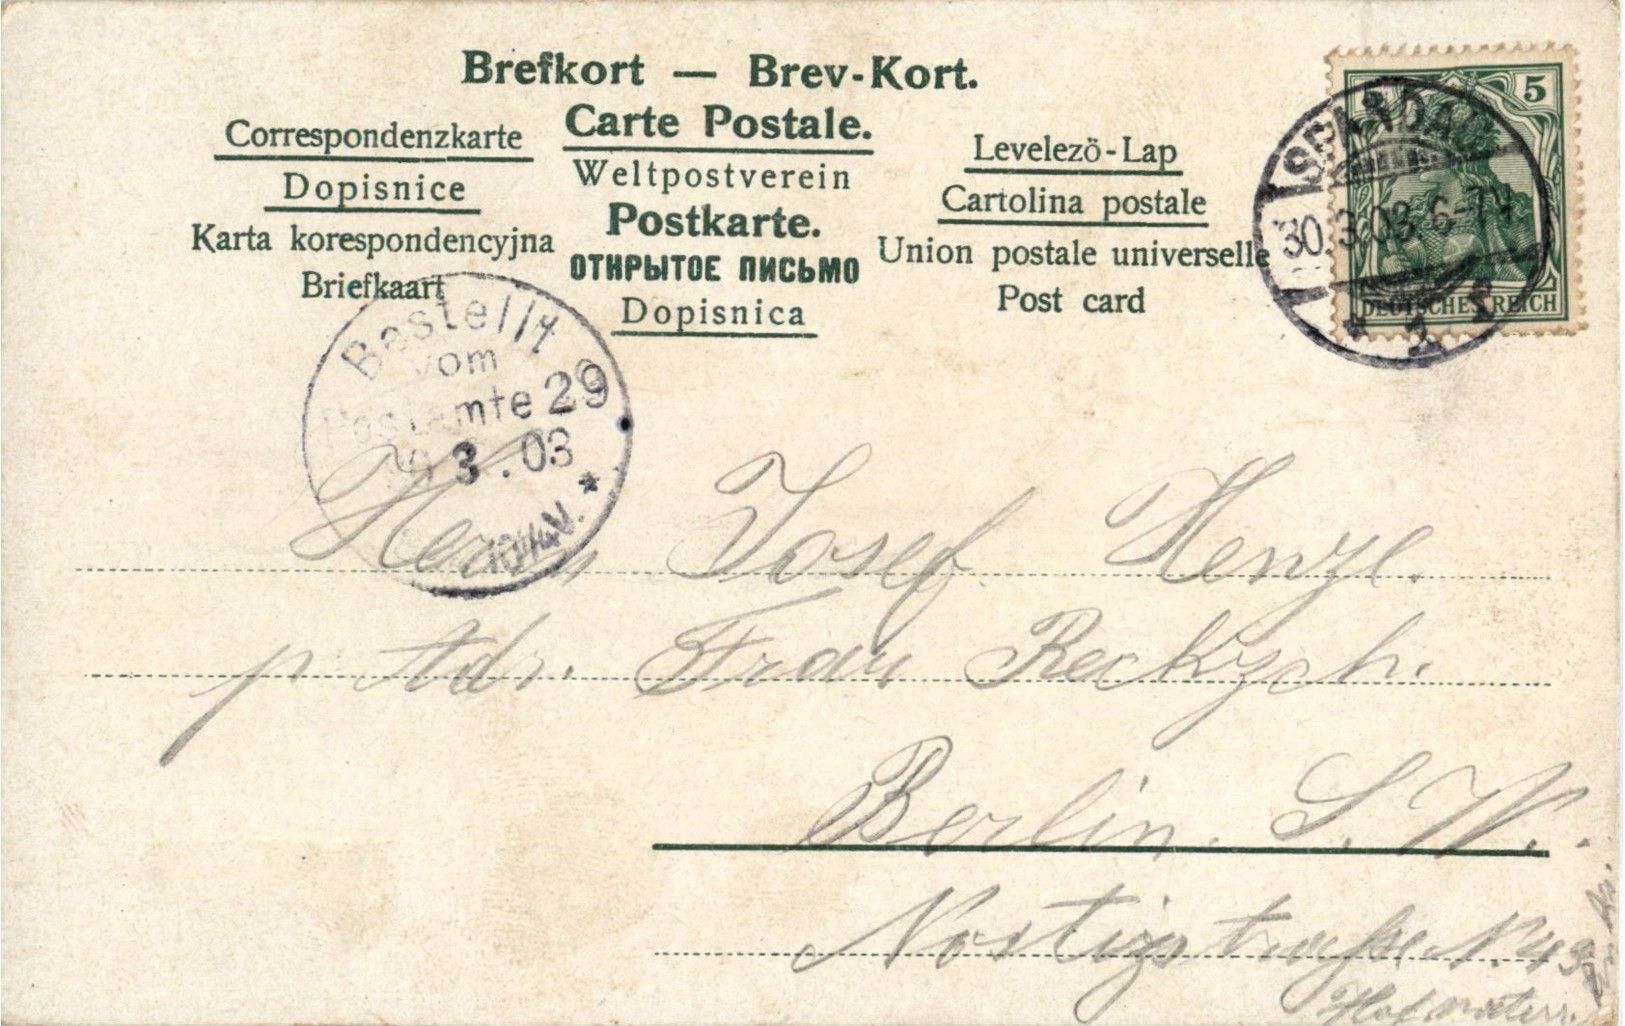 Brefkort — Brev-Kort.
Carte Postale.
Weltpostverein
Postkarte.
ОТКРЫТОЕ ПИСЬМО
Dopisnica
Correspondenzkarte
Dopisnice
Karta korespondencyjna
Briefkaart
Levelezö-Lap
Cartolina postale
Union postale universelle
Post card
5
DEUTSCHES REICH
SPANDAU
30.3.03. 6-7N
* 1
Bestellt
vom
Postamte 29
3.03
Herrn Josef Henze.
p. Adr. Frau Reckzch.
Berlin. S. W.
Nostizstraße N. 49